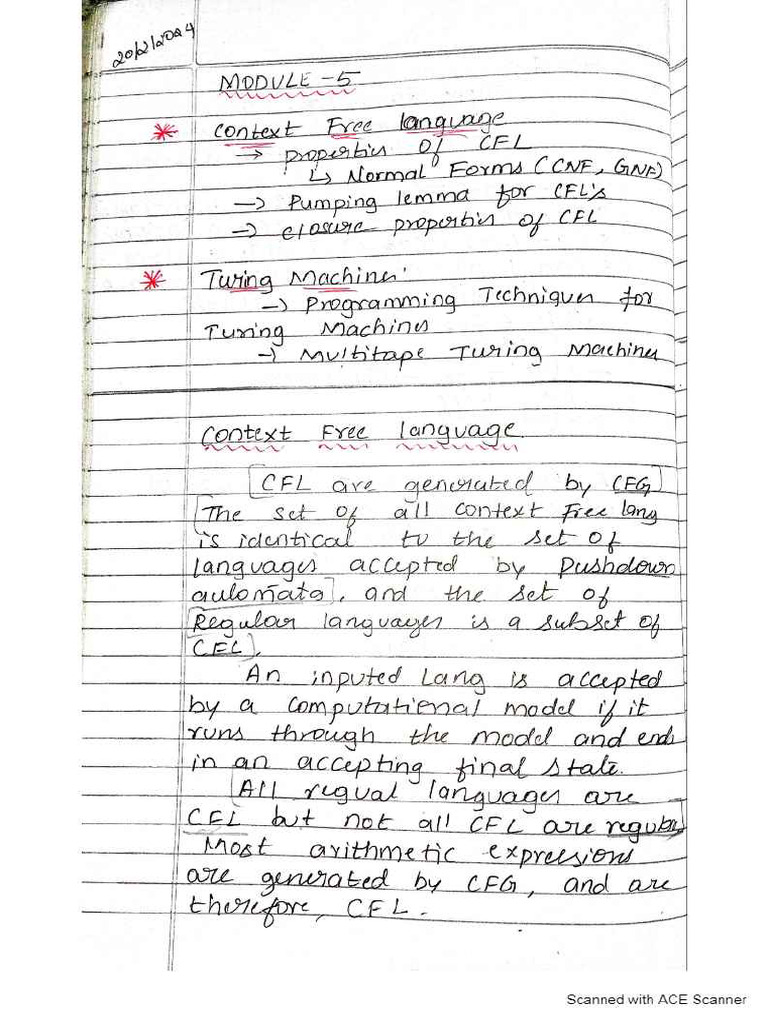 20/2/2024
MODULE-5
* Context Free language
→ properties of CFL
↳ Normal Forms (CNF, GNF)
→ Pumping lemma for CFL's
→ closure properties of CFL
* Turing Machines:
→ Programming Techniques for
Turing Machines
→ Multitape Turing Machines
Context Free language
CFL are generated by CFG
The set of all context Free lang
is identical to the set of
languages accepted by Pushdown
automata, and the set of
Regular languages is a subset of
CFL.
An inputed Lang is accepted
by a computational model if it
runs through the model and ends
in an accepting final state.
All regual languages are
CFL but not all CFL are regular
Most arithmetic expressions
are generated by CFG, and are
therefore, CFL.
Scanned with ACE Scanner